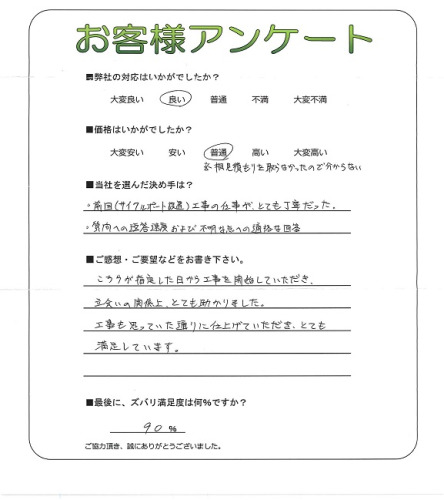 お客様アンケート
■弊社の対応はいかがでしたか?
大変良い 良い 普通 不満 大変不満
■価格はいかがでしたか?
大変安い 安い 普通 高い 大変高い
※相見積もりを取らなかったので分からない
■当社を選んだ決め手は?
・前回(サイクルポート設置)工事の仕事が、とても丁寧だった。
・質問への返答速度および不明な点への適格な回答
■ご感想・ご要望などをお書き下さい。
こちらが指定した日から工事を開始していただき、
立会いの関係上、とても助かりました。
工事も思っていた通りに仕上げていただき、とても
満足しています。
■最後に、ズバリ満足度は何%ですか?
90 %
ご協力頂き、誠にありがとうございました。